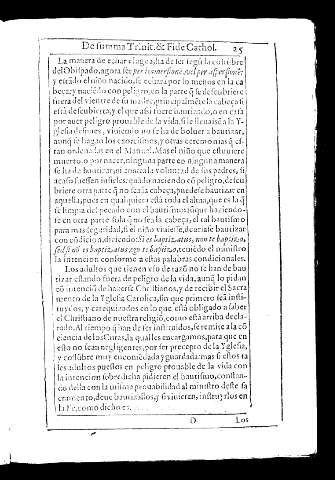 De summa Trinit. & Fide Cathol. 25
La manera de echar el agua, ha de ser segū la costūbre
del Obispado, agora sea per immersionē, vel per aspersionē:
y estādo el niño nacido, se echarà por lo menos en la ca
beça; y naciēdo con peligro, en la parte q̄ se descubriere
fuera del vientre de su madre, principalmēte la cabeça si
està descubierta, y el que assi fuere bautizado, o en casa
por auer peligro prouable de la vida, si le lleuarē a la Y-
glesia despues, viuiendo no se ha de boluer a bautizar,
aunq̄ se hagan los exorcismos, y otras ceremonias q̄ es-
tan ordenadas en el Manual. Mas el niño que estuuiere
muerto, o por nacer, ninguna parte en ninguna manera
se ha de bautizar, ni contra la voluntad de sus padres, si
acaso fuessen infieles: y quādo naciendo cō peligro, descu
briere otra parte q̄ no sea la cabeça, puedese bautizar en
aquella, pues en qual quiera està toda el alma, que es la q̄
se limpia del pecado con el bautismo: aunque haziendo-
se en otra parte sola q̄ no sea la cabeça, el tal bautismo
para mas seguridad, si el niño viuiesse, deuriase bautizar
con cōdicion, diziendo: Si es baptizatus, non te baptizo,
sed si nō es baptizatus, ego te baptizo, teniēdo el ministro
la intencion conforme a estas palabras condicionales.
Los adultos que tienen vso de razō no se han de bau
tizar estando fuera de peligro de la vida, aunq̄ lo pidan
cō intenciō de hazerse Christianos, y de recibir el Sacra
mento de la Yglesia Catolica, sin que primero seā insti-
tuydos, y catequizados en lo que està obligado a saber
el Christiano de nuestra religiō, como està arriba decla-
rado. Al tiempo q̄ han de ser instruidos, se remite a la cō
ciencia de los Curas, la qual les encargamos, para que en
esto no sean negligentes, por ser precepto de la Yglesia,
y costūbre muy encomēdada y guardada: mas si estos ta
les adultos puestos en peligro prouable de la vida con
la intencion sobredicha pidieren el bautismo, constan-
do della con la misma prouabilidad al ministro deste sa
cramento, deue bautizallos, y si viuieren, instruyrlos en
la Fè, como dicho es.
D Los